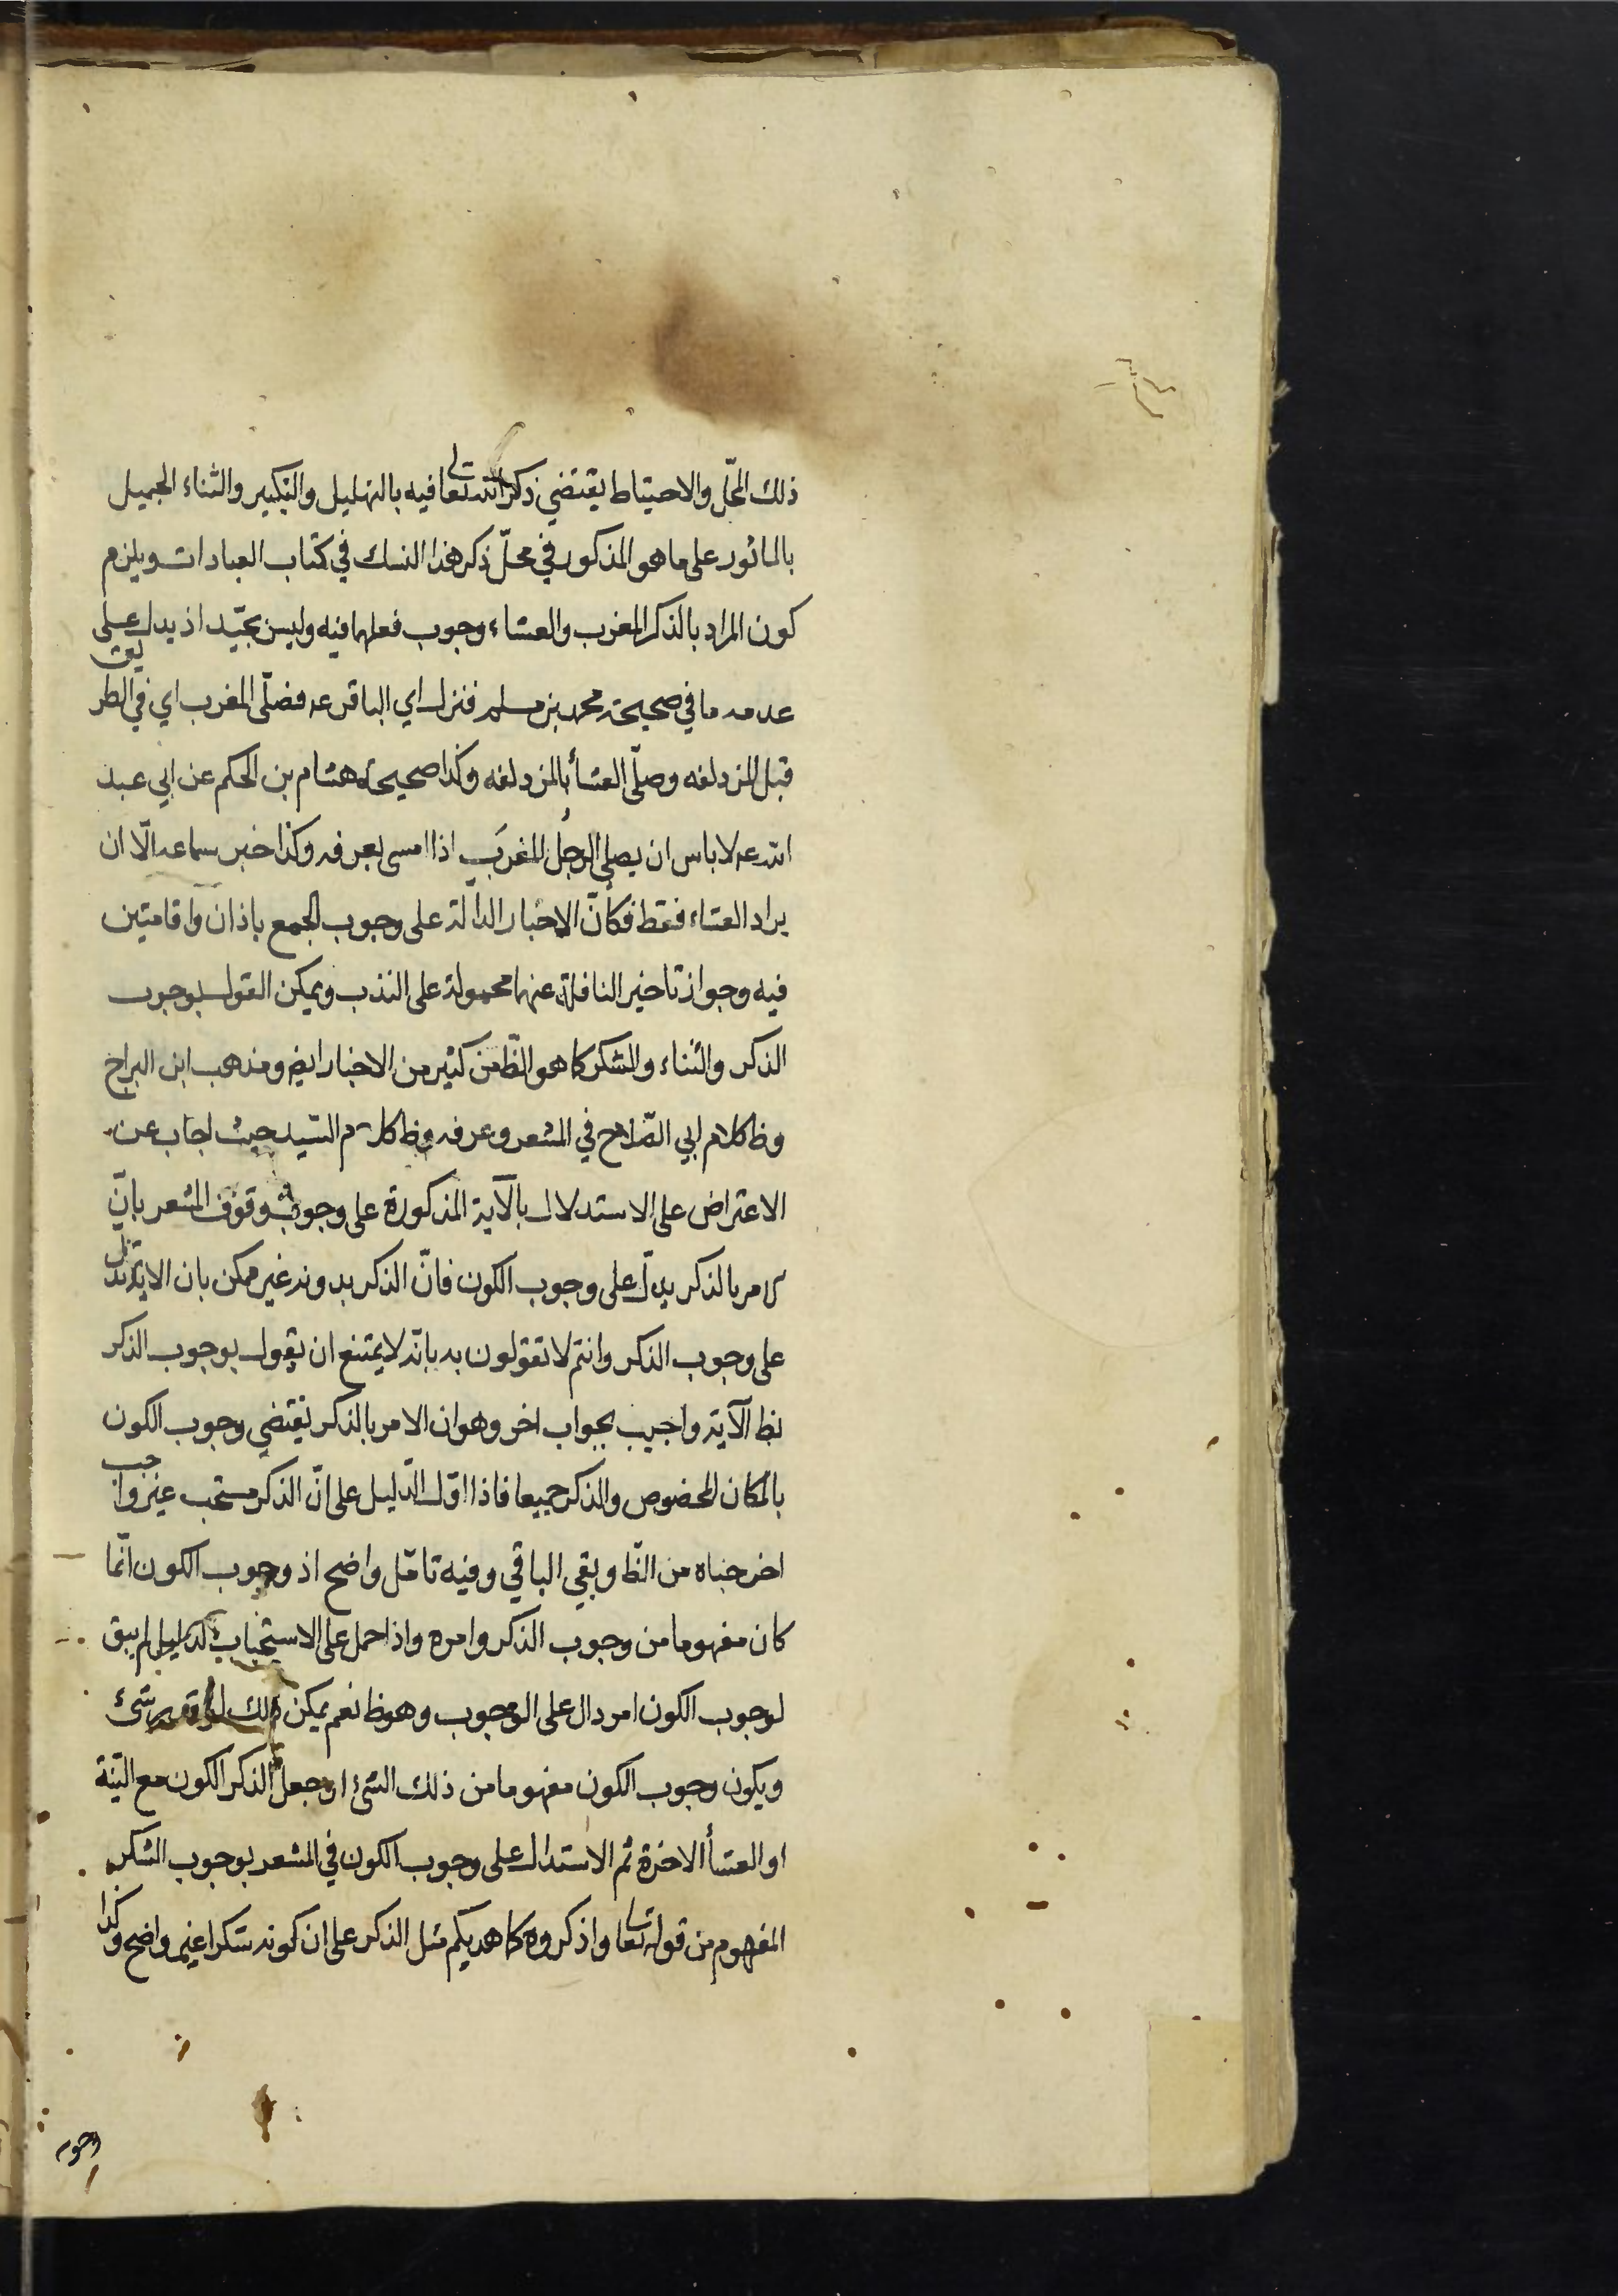 ذلك المحلّ والاحتياط يقتضي ذكر الله تعالى فيه بالتهليل والتكبير والثناء الجميل
بالمأثور على ما هو المذكور في محلّ ذكر هذا النسك في كتاب العبادات ويلزم
كون المراد بالذكر المغرب والعشاء وجوب فعلهما فيه وليس بجيّد اذ يدل على
عدمه ما في صحيحة محمد بن مسلم فنزل اي الباقر عه فصلّى المغرب اي في الطريق
قبل المزدلفه وصلّى العشأ بالمزدلفه وكذا صحيحة هشام بن الحكم عن ابي عبد
الله عه لا باس ان يصلي الرجل المغرب اذا امسى بعرفه وكذا خبر سماعه الّا ان
يراد العشاء فقط فكانّ الاخبار الدالّة على وجوب الجمع باذان واقامتين
فيه وجواز تاخير النافلة عنهما محمولة على الندب ويمكن القول بوجوب
الذكر والثناء والشكر كما هو الظّ من كثير من الاخبار ايض ومذهب ابن البراج
وظ كلام ابي الصّلاح في المشعر وعرفه وظ كلام السّيد حيث اجاب عن
الاعتراض على الاستدلال بالآية المذكورة على وجوب وقوف المشعر بانّ
الامر بالذكر يدلّ على وجوب الكون فانّ الذكر بدونه غير ممكن بان الاية تدلّ
على وجوب الذكر وانتم لا تقولون به بانّه لا يمتنع ان يقول بوجوب الذكر
بظ الآية واجيب بجواب اخر وهو ان الامر بالذكر يقتضي وجوب الكون
بالمكان المخصوص والذكر جميعا فاذا دلّ الدّليل على انّ الذكر مستحب غير واجب
اخرجناه من الظّ وبقي الباقي وفيه تامّل واضح اذ وجوب الكون انّما
كان مفهوما من وجوب الذكر وامره واذا حمل على الاستحباب لدليل لم يبق
لوجوب الكون امر دال على الوجوب وهو ظ نعم يمكن ذلك لو قدر شئ
ويكون وجوب الكون مفهوما من ذلك الشئ او جعل الذكر الكون مع النّية
او العشأ الاخرة ثم الاستدلال على وجوب الكون في المشعر بوجوب الشكر
المفهوم من قوله تعالى واذكروه كما هديكم مثل الذكر على ان كونه شكرا غير واضح وكذا
وجوبه